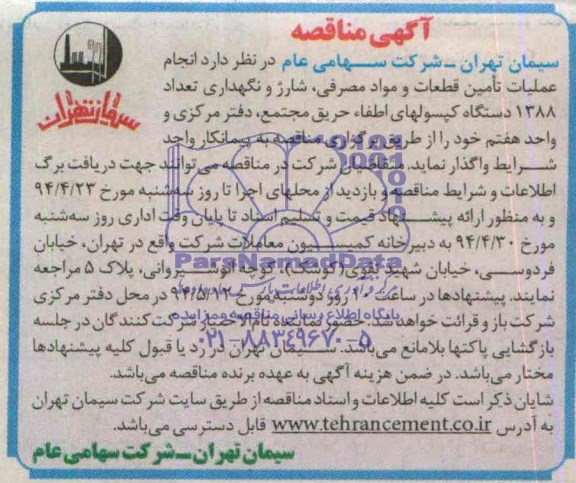 آگهی مناقصه
سیمان تهران ــ شرکت سهامی عام در نظر دارد انجام
عملیات تأمین قطعات و مواد مصرفی، شارژ و نگهداری تعداد
۱۳۸۸ دستگاه کپسولهای اطفاء حریق مجتمع، دفتر مرکزی و
واحد هفتم خود را از طریق برگزاری مناقصه به پیمانکار واجد
شرایط واگذار نماید. متقاضیان شرکت در مناقصه می‌توانند جهت دریافت برگ
اطلاعات و شرایط مناقصه و بازدید از محلهای اجرا تا روز سه‌شنبه مورخ ۹۴/۴/۲۳
و به منظور ارائه پیشنهاد قیمت و تسلیم اسناد تا پایان وقت اداری روز سه‌شنبه
مورخ ۹۴/۴/۳۰ به دبیرخانه کمیسیون معاملات شرکت واقع در تهران، خیابان
فردوسی، خیابان شهید تقوی (کوشک)، کوچه انوشیروانی، پلاک ۵ مراجعه
نمایند. پیشنهادها در ساعت ۱۰ روز دوشنبه مورخ ۹۴/۵/۱۲ در محل دفتر مرکزی
شرکت باز و قرائت خواهد شد. حضور نماینده تام‌الاختیار شرکت‌کنندگان در جلسه
بازگشایی پاکتها بلامانع می‌باشد. سیمان تهران در رد یا قبول کلیه پیشنهادها
مختار می‌باشد. در ضمن هزینه آگهی به عهده برنده مناقصه می‌باشد.
شایان ذکر است کلیه اطلاعات و اسناد مناقصه از طریق سایت شرکت سیمان تهران
به آدرس www.tehrancement.co.ir قابل دسترسی می‌باشد.
سیمان تهران ــ شرکت سهامی عام
سیمان تهران
ParsNamadData
پایگاه اطلاع رسانی مناقصه و مزایده
۰۲۱-۸۸۳۴۹۶۷۰-۵